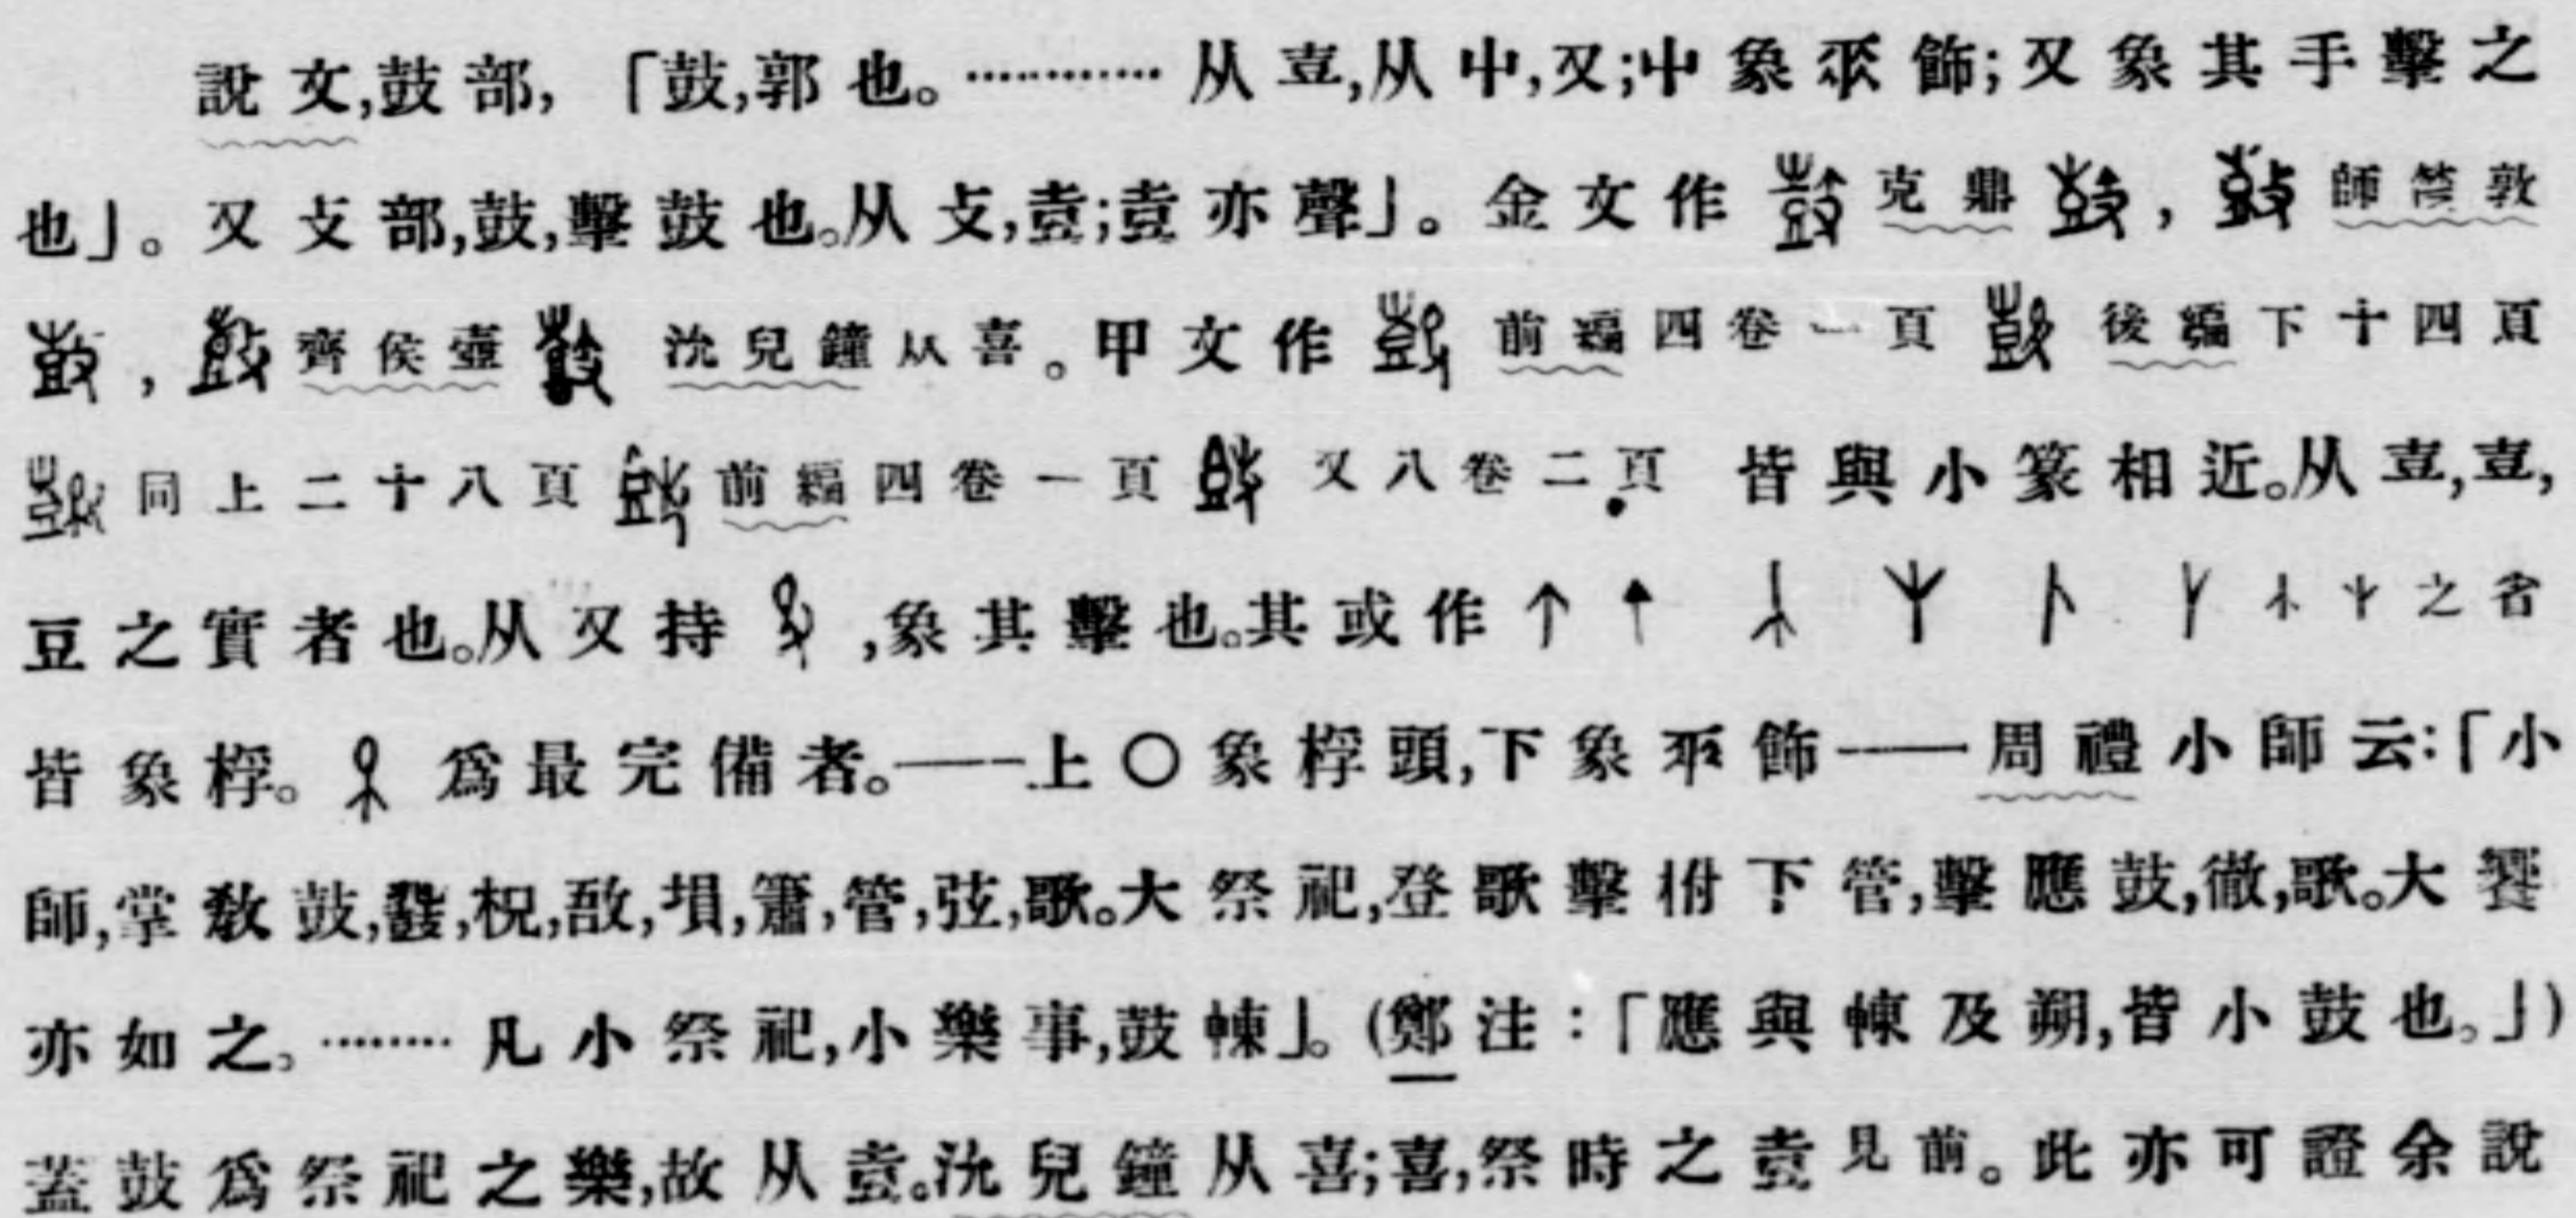 說文,鼓部,「鼓,郭也。…………从壴,从屮,又;屮象𠂹飾;又象其手擊之
也」。又攴部,鼓,擊鼓也。从攴,壴;壴亦聲」。金文作 克鼎 , 師𠭰敦
, 齊侯壺 沇兒鐘从喜。甲文作 前編四卷一頁 後編下十四頁
同上二十八頁 前編四卷一頁 又八卷二頁 皆與小篆相近。从壴,壴,
豆之實者也。从又持 ,象其擊也。其或作 之者
皆象桴。 爲最完備者。——上〇象桴頭,下象𠂹飾——周禮小師云:「小
師,掌教鼓,鼗,柷,敔,塤,簫,管,弦,歌。大祭祀,登歌擊拊下管,擊應鼓,徹,歌。大饗
亦如之。………凡小祭祀,小樂事,鼓㯥」。(鄭注:「應與㯥及朔,皆小鼓也。」)
蓋鼓爲祭祀之樂,故从壴。沇兒鐘从喜;喜,祭時之壴見前。此亦可證余說